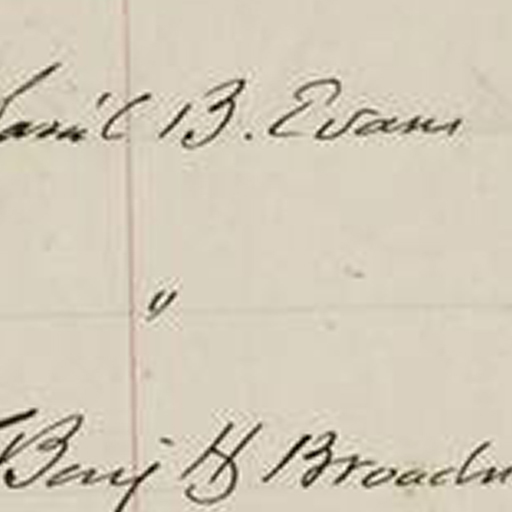 Sam'l B. Evans
"
Benj H Broadn